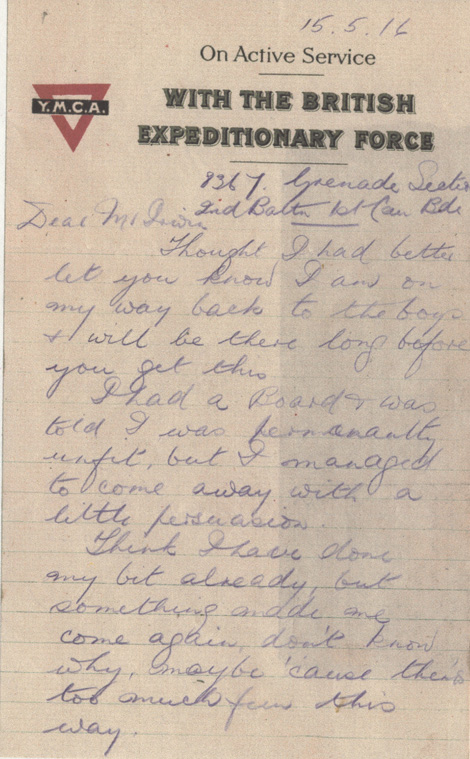 15.5.16
On Active Service
Y.M.C.A.
WITH THE BRITISH
EXPEDITIONARY FORCE
Grenade Section
Dear Mr Irwin
2nd Battn 1st Can Bde
Thought I had better
let you know I am on
my way back to the boys
& will be there long before
you get this
I had a Board & was
told I was permanantly
unfit, but I managed
to come away with a
little persuasion.
Think I have done
my bit already, but
something made me
come again, don't know
why, maybe 'cause there's
too much fun this
way.